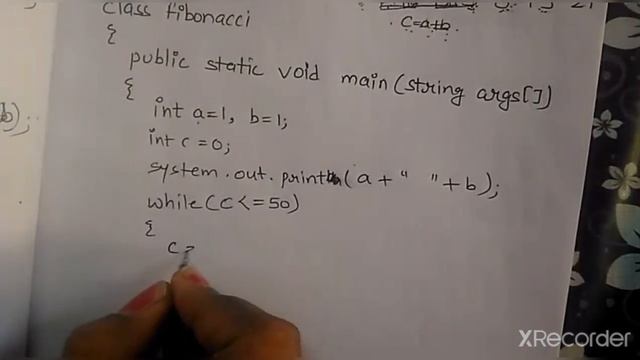 class Fibonacci
C=a+b
{
public static void main(string args[])
{
b);
int a=1, b=1;
int c=0;
system.out.println(a+" "+b);
while(c<=50)
{
c=
XRecorder